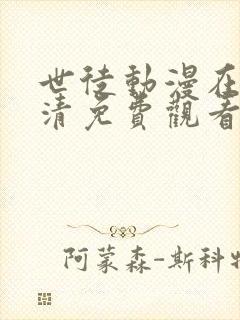 世徒動漫在
清免費觀看
阿蒙森-斯科特